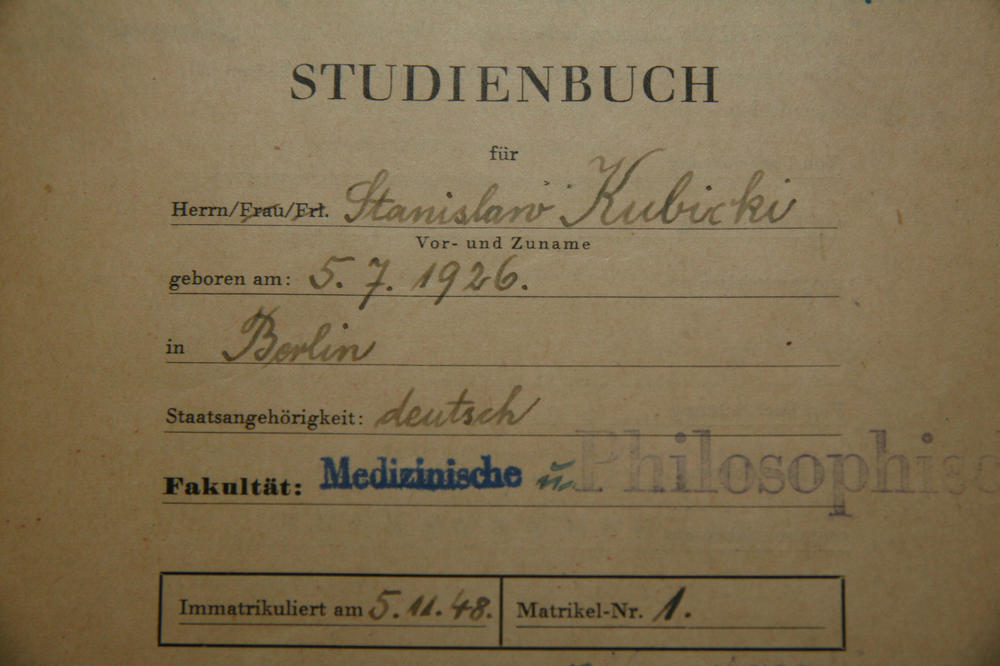 STUDIENBUCH
für
Herrn/Frau/Frl. Stanislaw Kubicki
Vor- und Zuname
geboren am: 5. 7. 1926.
in Berlin
Staatsangehörigkeit: deutsch
Fakultät: Medizinische u. Philosophisc
Immatrikuliert am 5.11.48.
Matrikel-Nr. 1.